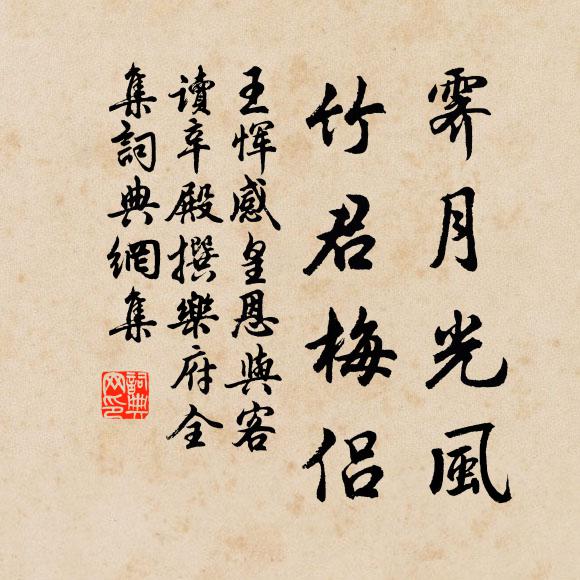 霽月光風
竹君梅侶
王惲感皇恩與客
讀辛殿撰樂府全
集詞典網集
詞典
网印